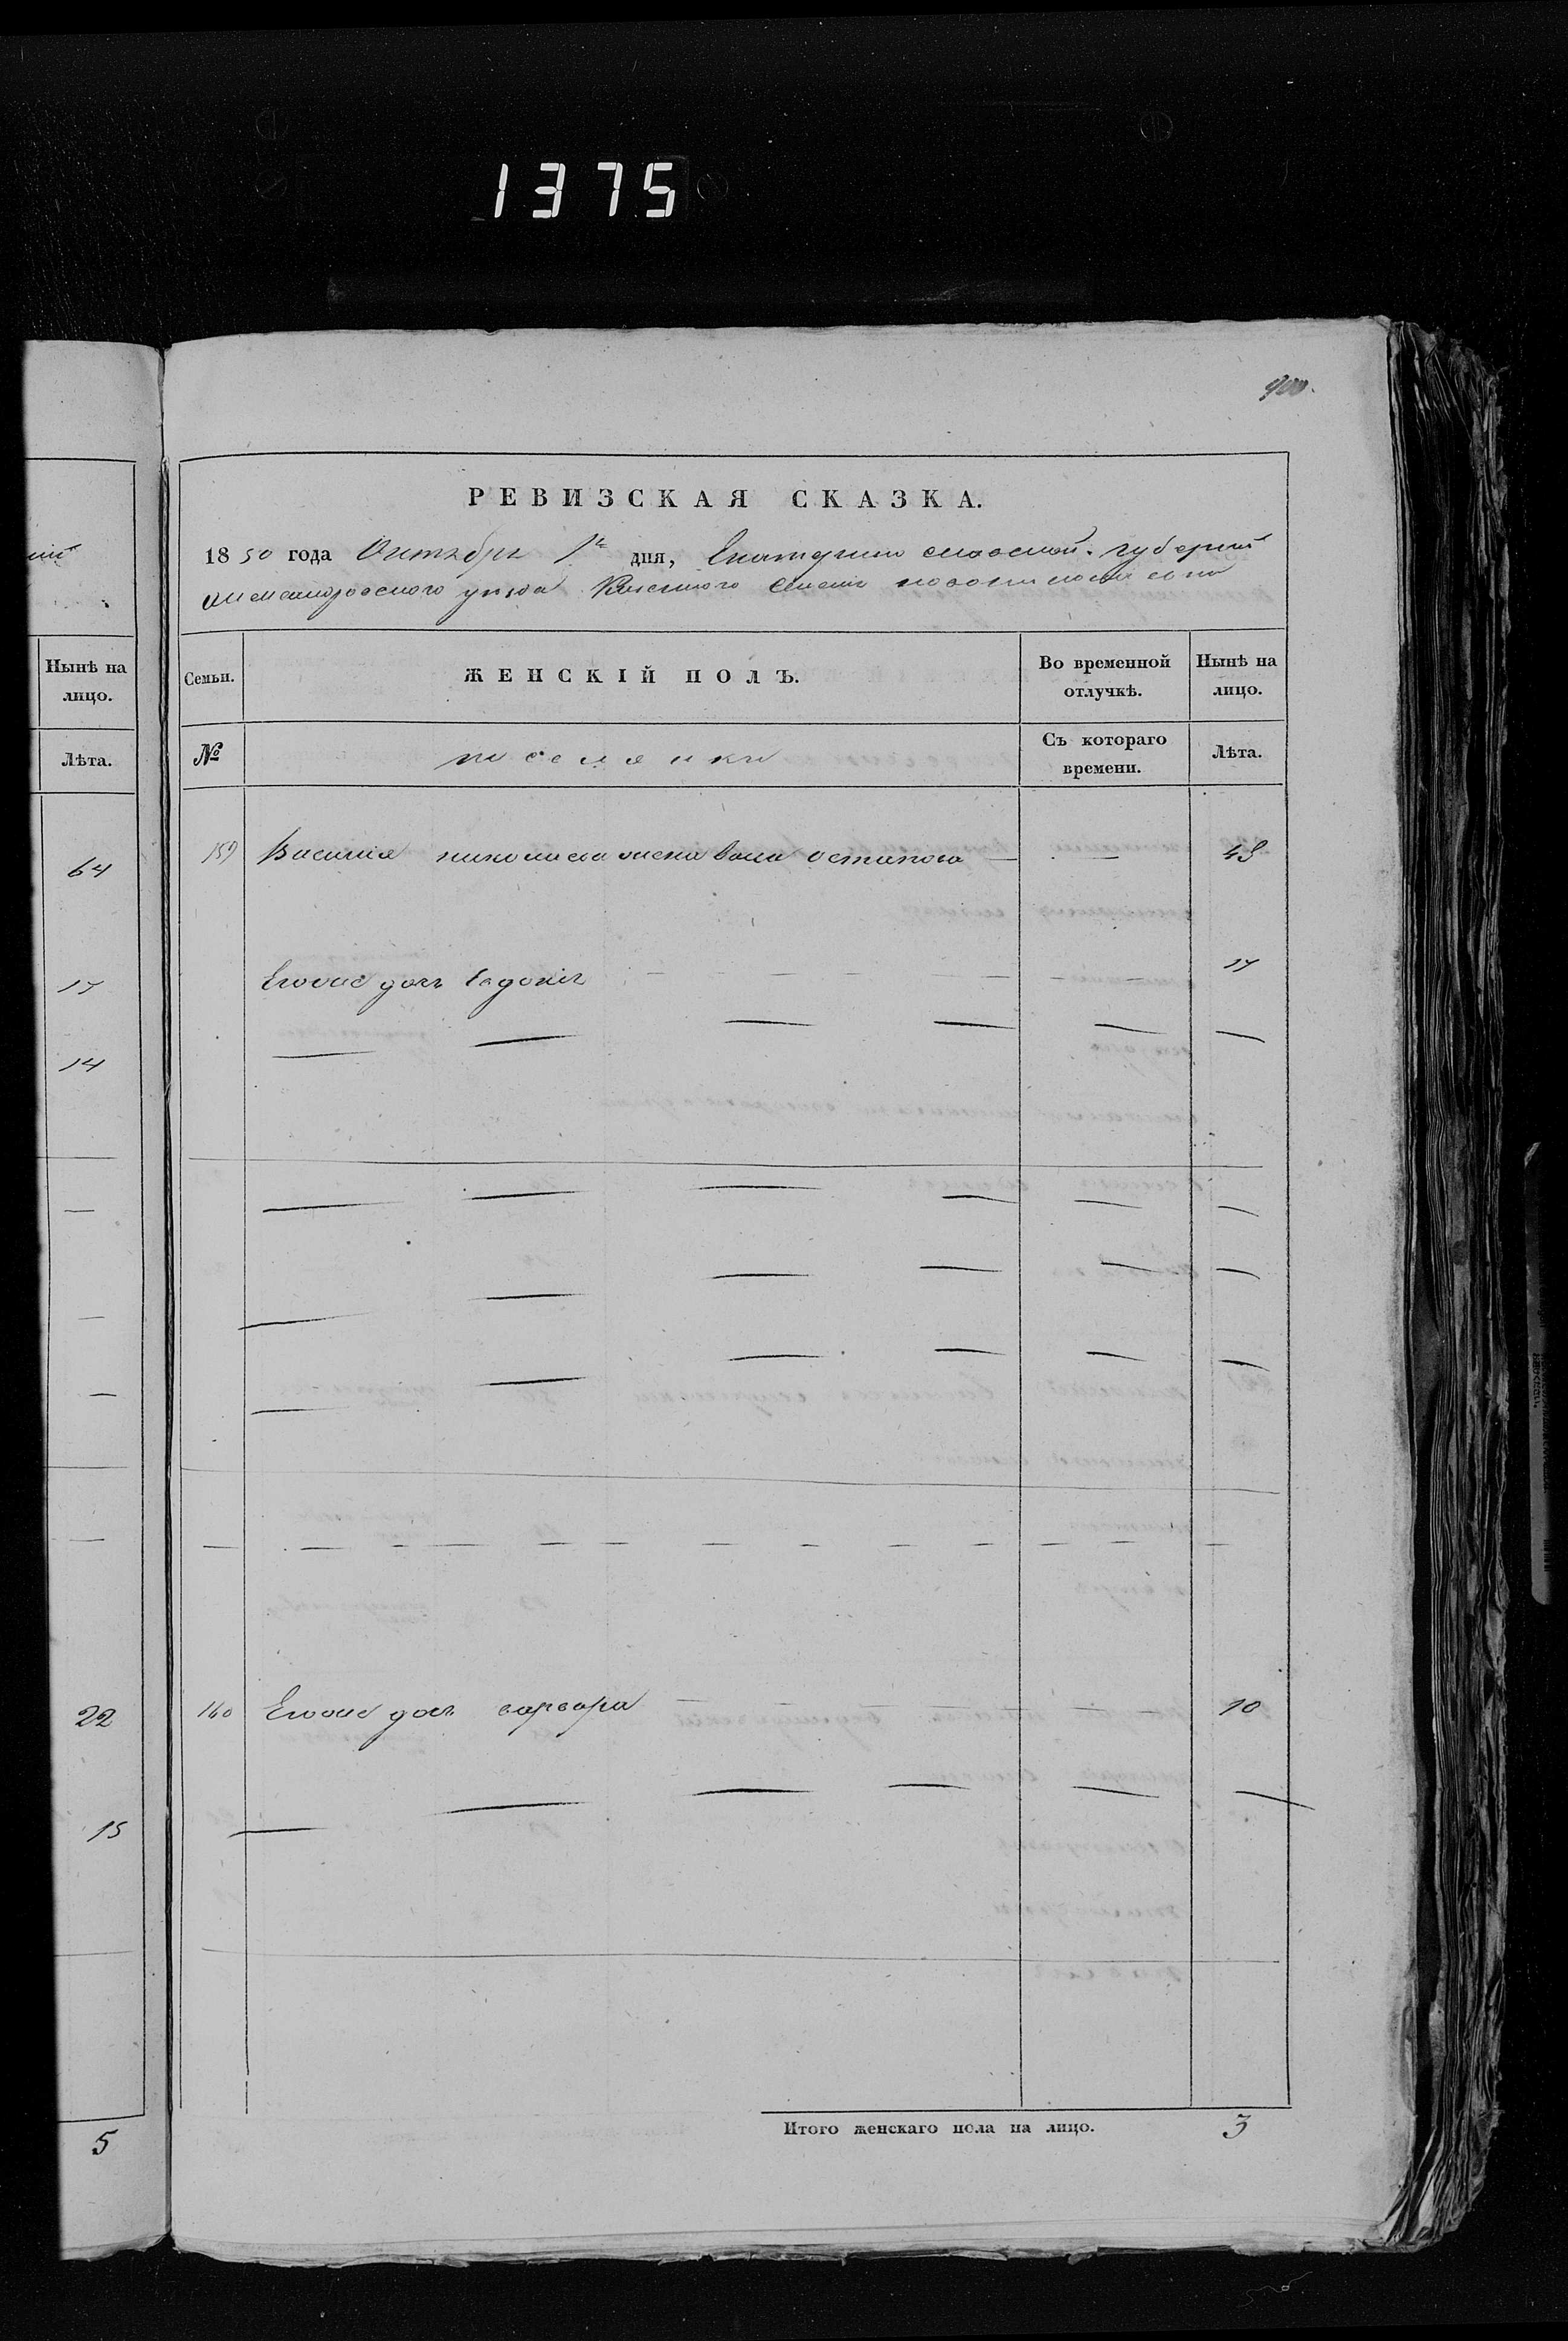 1375
400.
РЕВИЗСКАЯ СКАЗКА.
1850 года Октября 1го дня, Екатеринославской губернии
Александровского уезда Казенного селения
Нынѣ на лицо.
Семьи.
ЖЕНСКІЙ ПОЛЪ.
Во временной отлучкѣ.
Нынѣ на лицо.
Лѣта.
№
поселянки
Съ котораго времени.
Лѣта.
64
159 Василия николаева жена Остапова — — 43
17
Еговые дочь Евдокия — — — — — — 17
14
— — — — — —
— — — — — —
— — — — — —
— — — — — —
22
160 Еговые дочь варвара — — — — — — 10
15
— — — — — —
5
Итого женскаго пола на лицо. 3